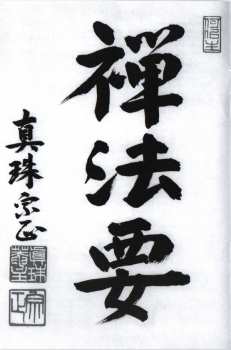 禅法要
真珠宗正